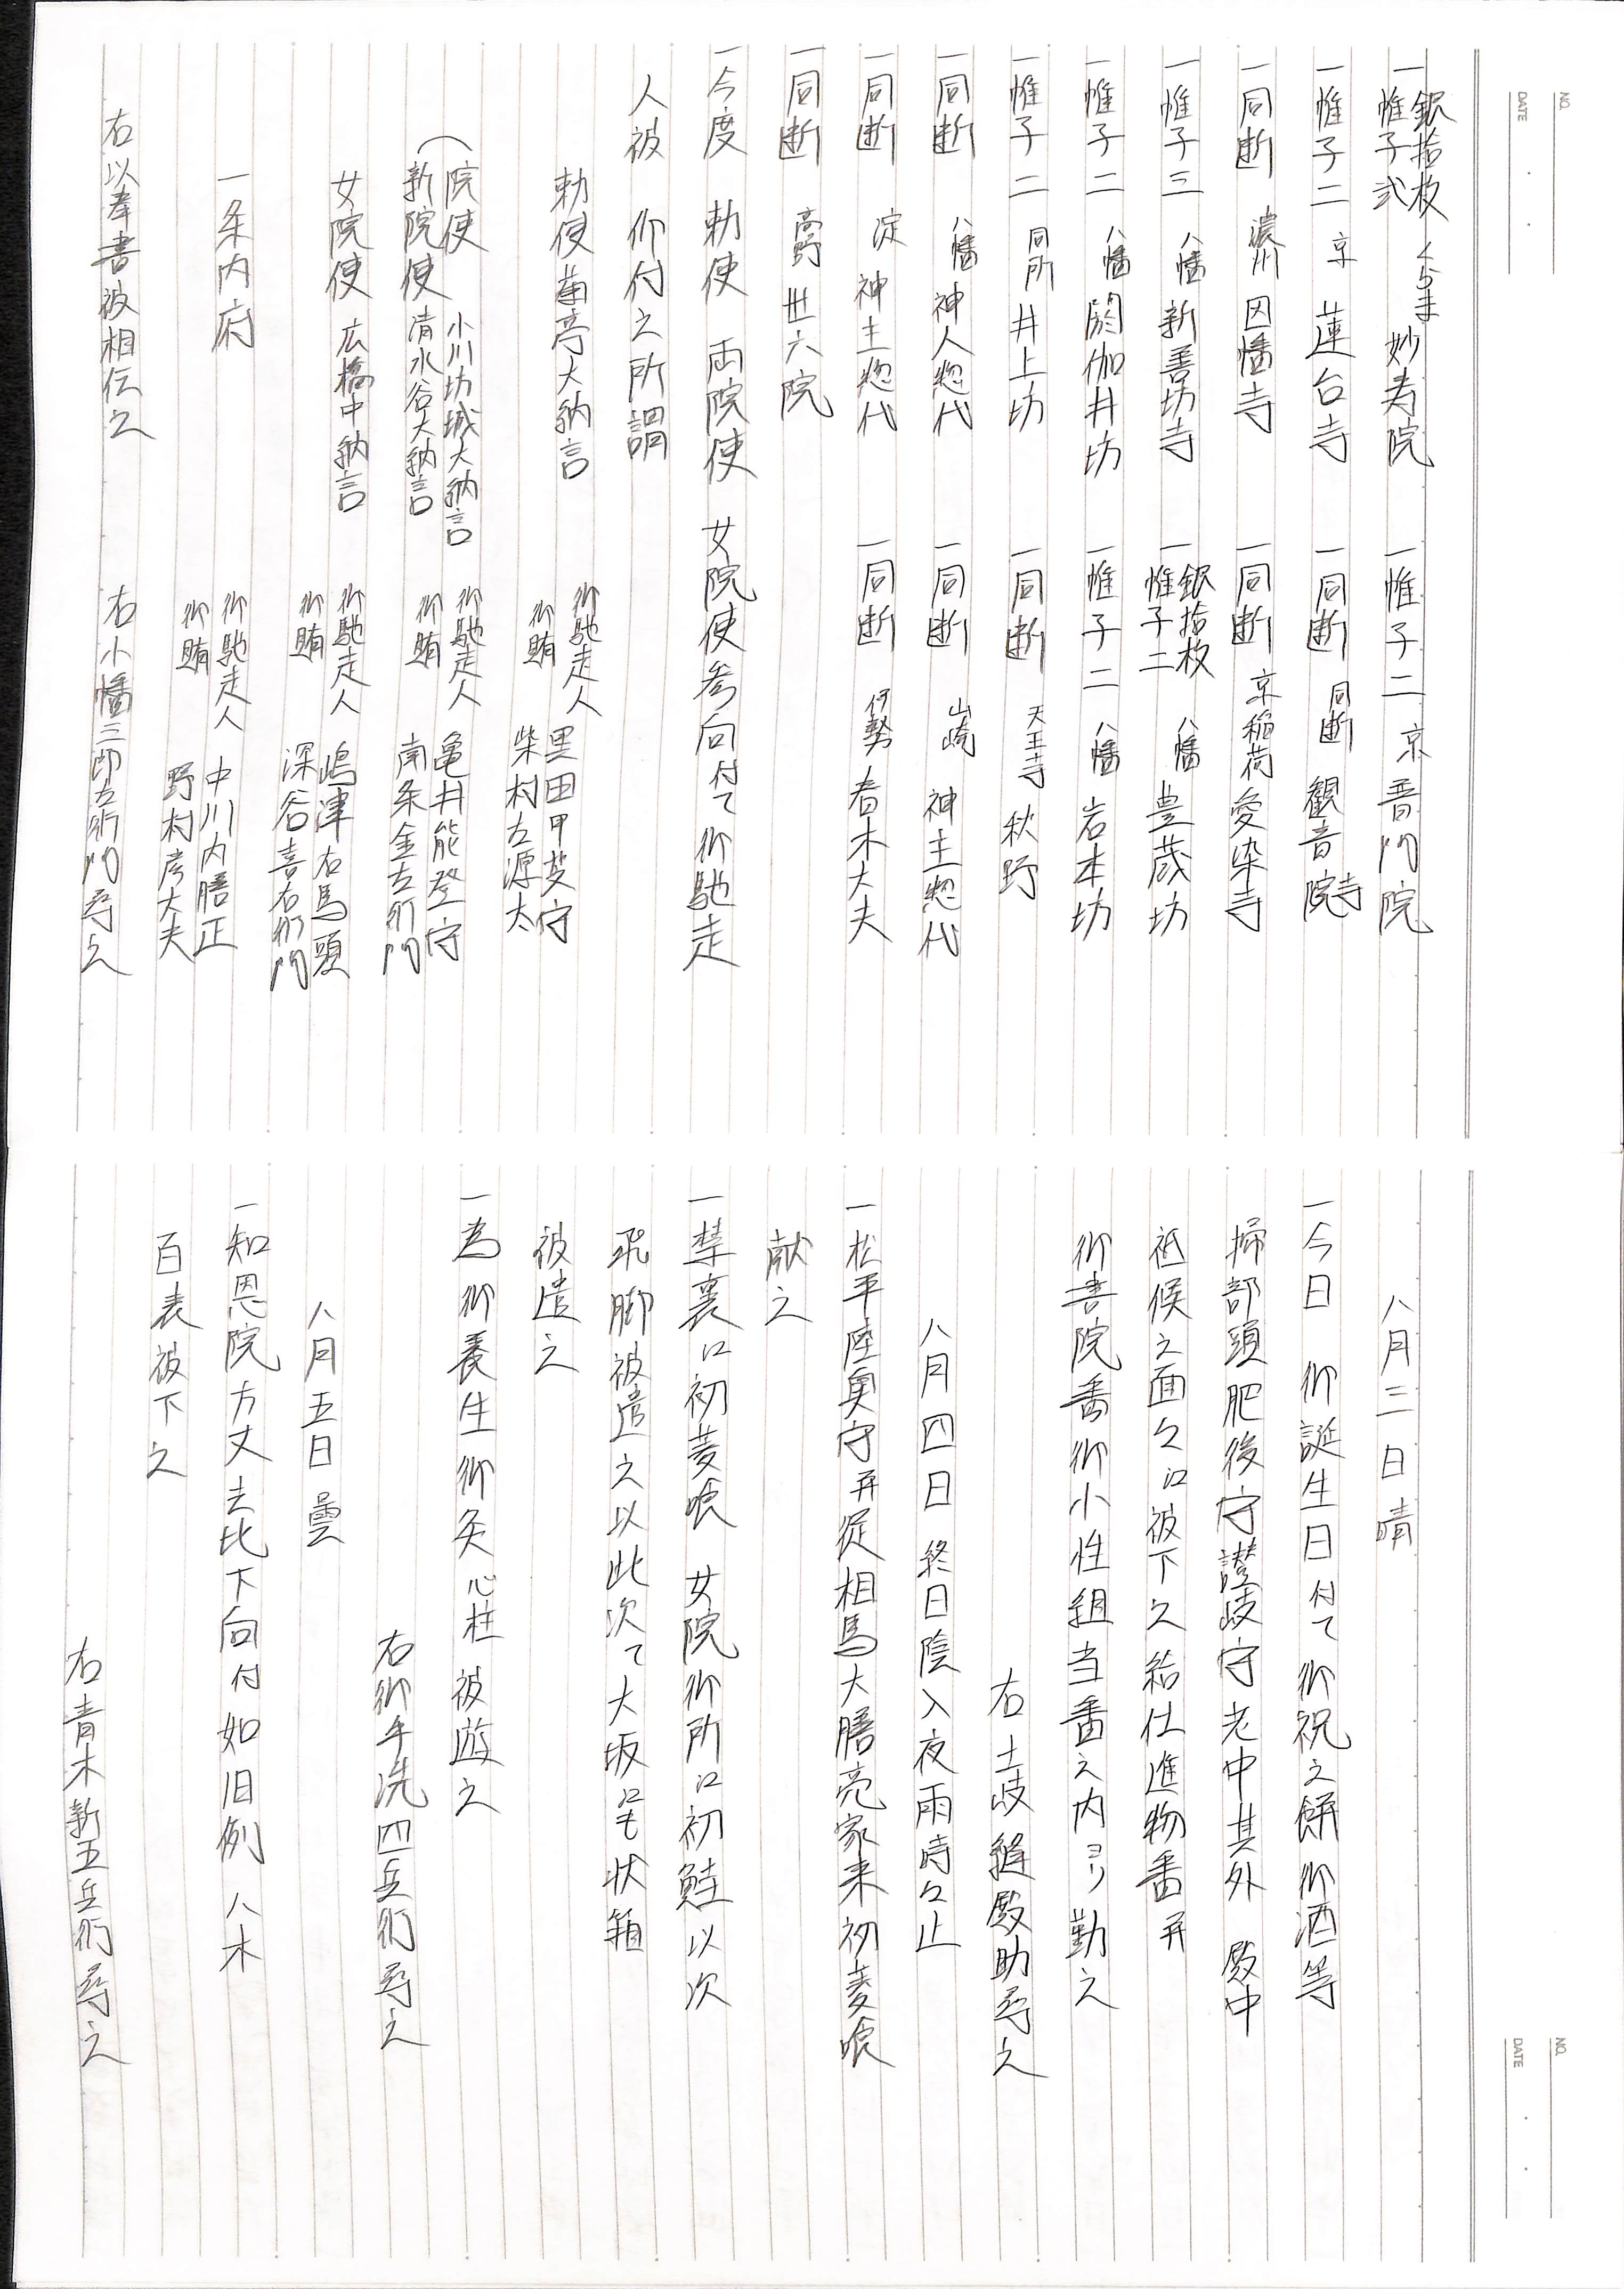 一銀拾枚 帷子弐 くらま 妙寿院
一帷子二 京 普門院
一帷子二 京 蓮台寺
一同断 同断 観音院寺
一同断 濃州 因幡寺
一同断 京稲荷 愛染寺
一帷子三 八幡 新善坊寺
一銀拾枚 帷子二 八幡 豊蔵坊
一帷子二 八幡 閼伽井坊
一帷子二 八幡 岩本坊
一帷子二 同所 井上坊
一同断 天王寺 秋野
一同断 八幡 神人惣代
一同断 山崎 神主惣代
一同断 淀 神主惣代
一同断 伊勢 春木大夫
一同断 高野 卅六院
一今度 勅使 両院使 女院使参向付て御馳走
人被 仰付之所謂
勅使 菊亭大納言 御馳走人 黒田甲斐守
御賄 柴村左源太
院使 小川坊城大納言 御馳走人 亀井能登守
新院使 清水谷大納言 御賄 南条金左衛門
女院使 広橋中納言 御馳走人 嶋津右馬頭
御賄 深谷喜右衛門
一条内府 御馳走人 中川内膳正
御賄 野村彦大夫
右以奉書被相伝之 右小幡三郎左衛門尋之
八月三日晴
一今日 御誕生日付て御祝之餅御酒等
掃部頭肥後守讃岐守老中其外 殿中
祗候之面々江被下之給仕進物番并
御書院番御小性組当番之内ヨリ勤之
右土岐縫殿助尋之
八月四日 終日陰入夜雨時々止
一松平陸奥守并従相馬大膳亮家来初菱喰
献之
一禁裏江初菱喰 女院御所江初鮭以次
飛脚被遣之以此次て大坂江も状箱
被遣之
一為御養生御灸心柱被遊之
右御手洗四兵衛尋之
八月五日曇
一知恩院方丈去比下向付如旧例 八木
百表被下之
右青木新五兵衛尋之
NO.
DATE
NO.
DATE